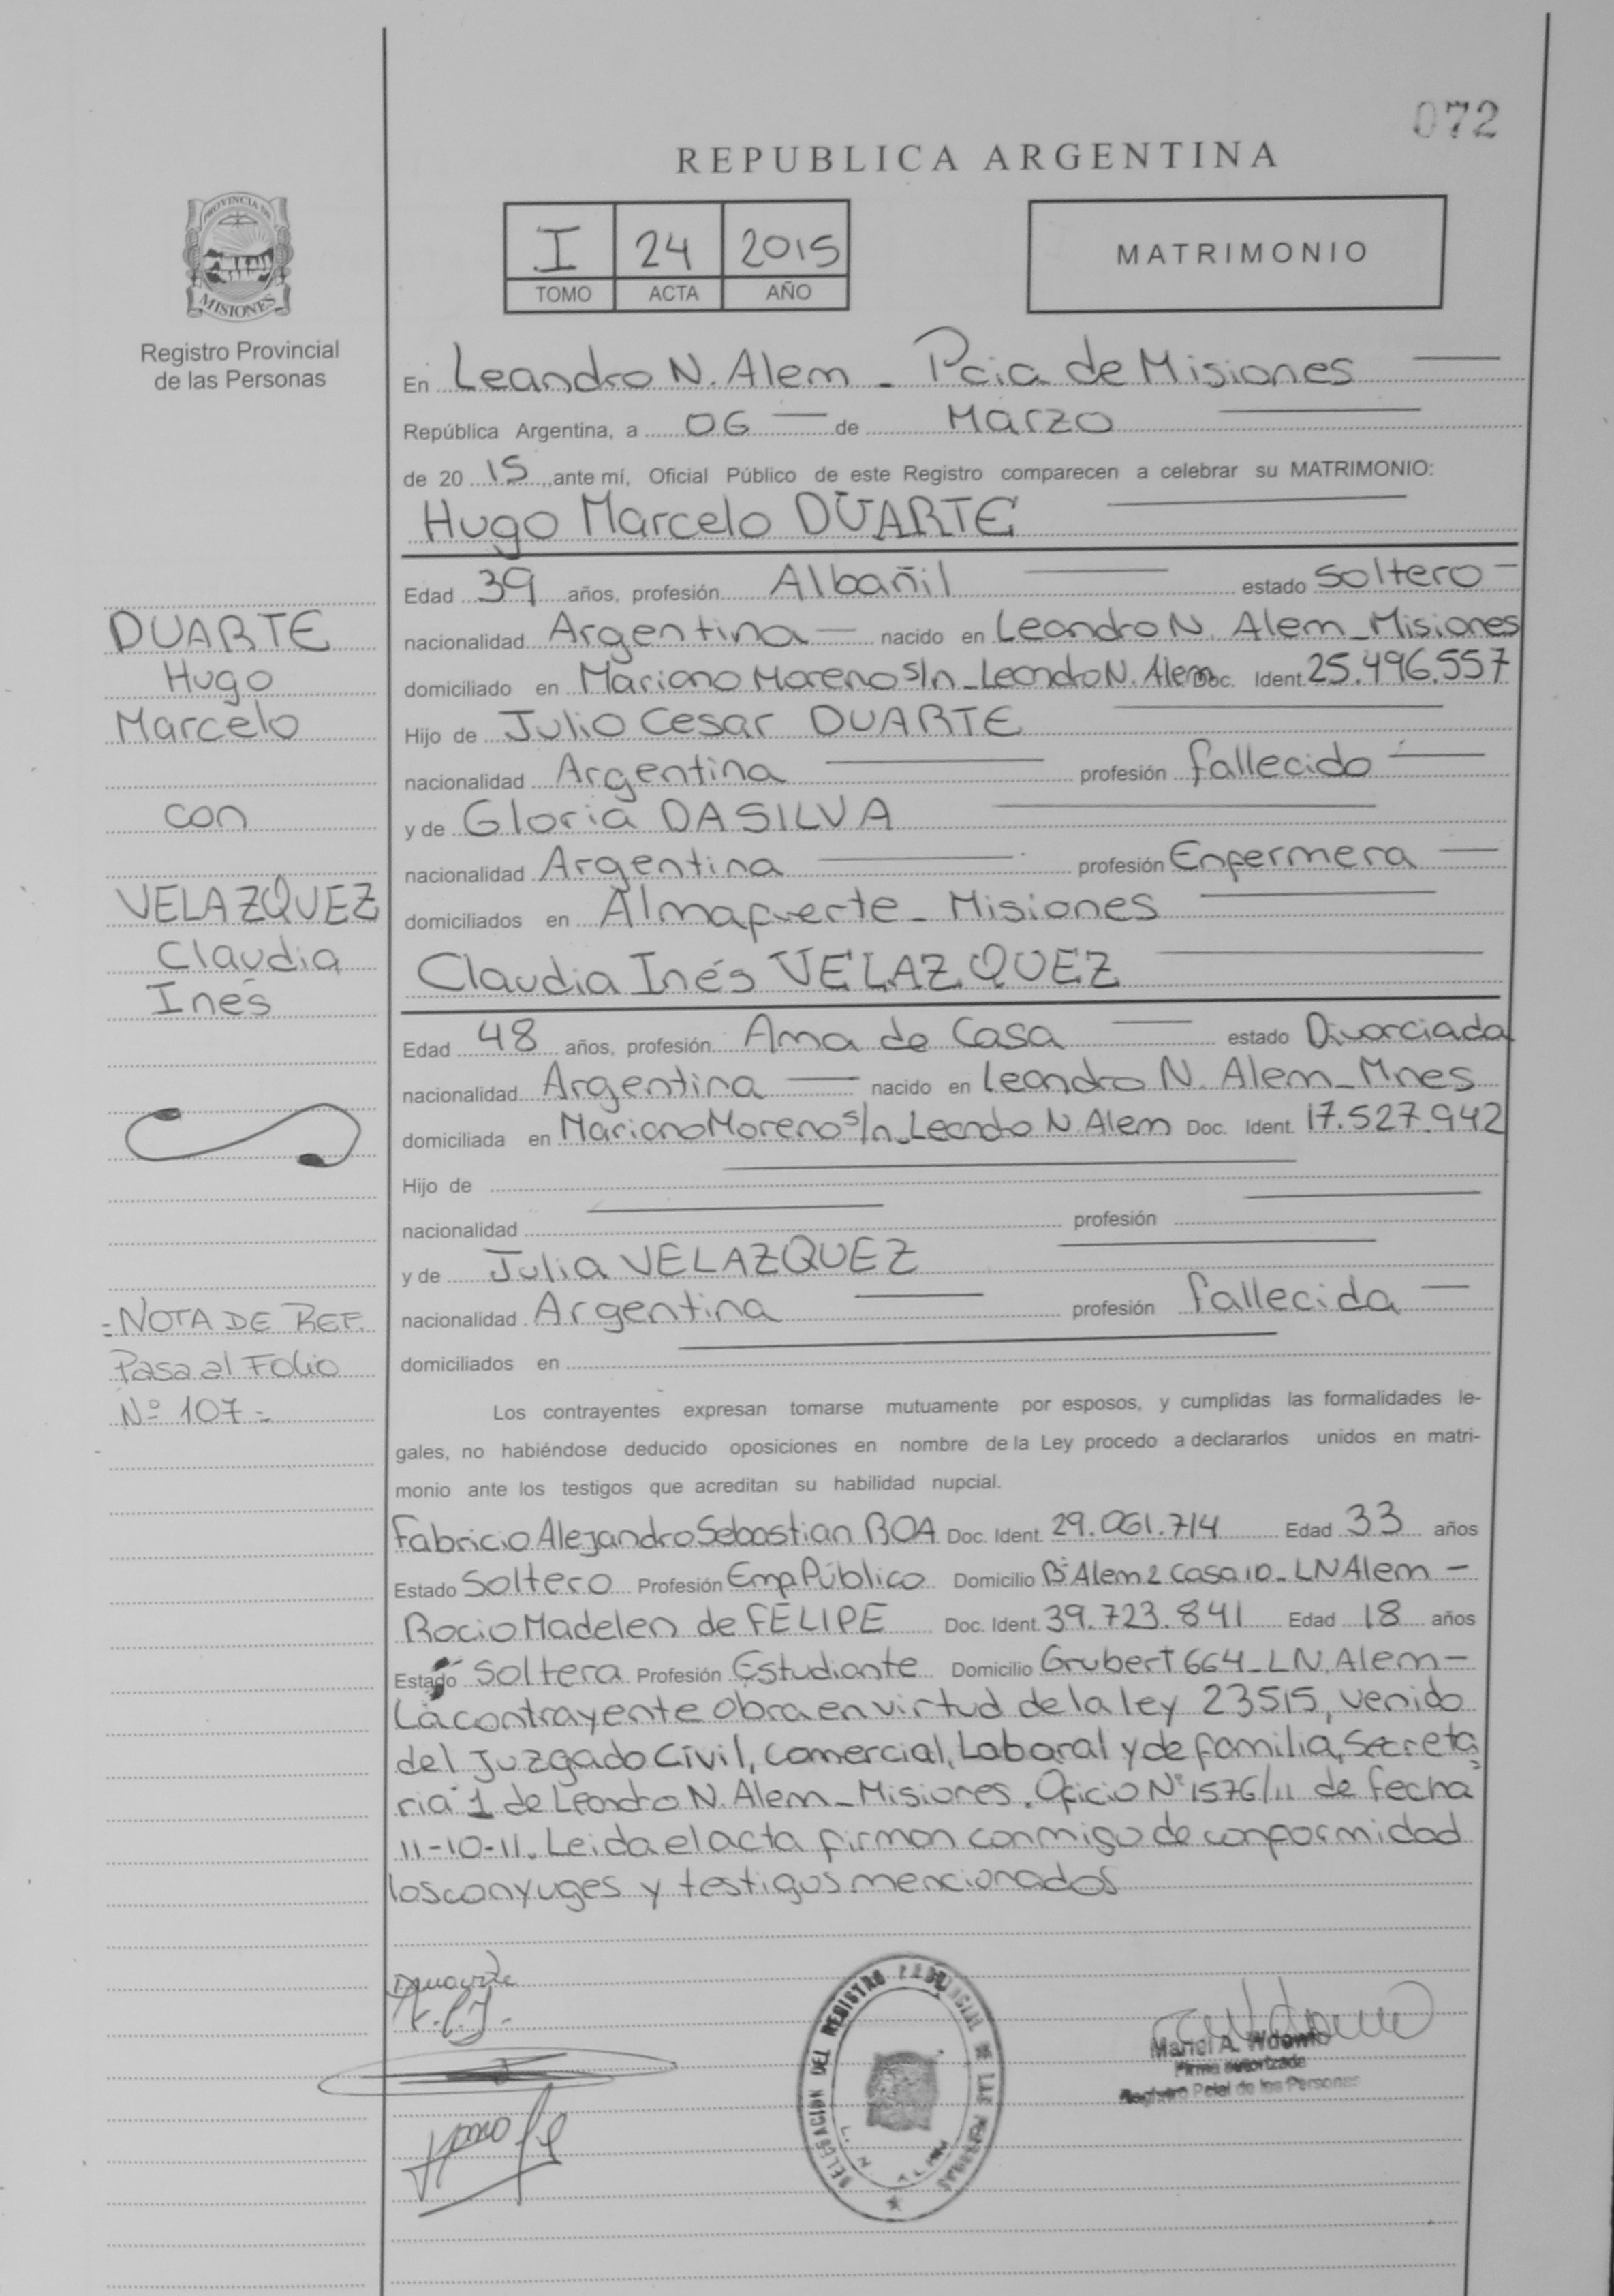 072
REPUBLICA ARGENTINA
I 24 2015
TOMO ACTA AÑO
MATRIMONIO
PROVINCIA DE
MISIONES
Registro Provincial
de las Personas
En Leandro N. Alem - Pcia de Misiones
República Argentina, a 06 de Marzo
de 20 15, ante mí, Oficial Público de este Registro comparecen a celebrar su MATRIMONIO:
Hugo Marcelo DUARTE
Edad 39 años, profesión Albañil estado Soltero
nacionalidad Argentina nacido en Leandro N. Alem - Misiones
domiciliado en Mariano Moreno s/n - Leandro N. Alem Doc. Ident. 25.496.557
Hijo de Julio Cesar DUARTE
nacionalidad Argentina profesión fallecido
y de Gloria DASILVA
nacionalidad Argentina profesión Enfermera
domiciliados en Almafuerte - Misiones
Claudia Inés VELAZQUEZ
Edad 48 años, profesión Ama de Casa estado Divorciada
nacionalidad Argentina nacido en Leandro N. Alem - Mnes
domiciliada en Mariano Moreno s/n - Leandro N Alem Doc. Ident. 17.527.942
Hijo de
nacionalidad profesión
y de Julia VELAZQUEZ
nacionalidad Argentina profesión fallecida
domiciliados en
Los contrayentes expresan tomarse mutuamente por esposos, y cumplidas las formalidades le-
gales, no habiéndose deducido oposiciones en nombre de la Ley procedo a declararlos unidos en matri-
monio ante los testigos que acreditan su habilidad nupcial.
Fabricio Alejandro Sebastian BOA Doc. Ident. 29.061.714 Edad 33 años
Estado Soltero Profesión Emp. Público Domicilio Bº Alem 2 Casa 10 - LN Alem -
Rocio Madelen de FELIPE Doc. Ident. 39.723.841 Edad 18 años
Estado Soltera Profesión Estudiante Domicilio Grubert 664 - LN. Alem -
La contrayente obra en virtud de la ley 23515, venido
del Juzgado Civil, Comercial, Laboral y de familia, Secreta
ria 1 de Leandro N. Alem - Misiones. Oficio Nº 1576/11 de fecha
11-10-11. Leida el acta firman conmigo de conformidad
los conyuges y testigos mencionados
DUARTE
Hugo
Marcelo
con
VELAZQUEZ
Claudia
Inés
- NOTA DE REF.
Pasa al Folio
Nº 107 -
DELEGACIÓN DEL REGISTRO PROVINCIAL DE LAS PERSONAS
L. N. ALEM
Firma autorizada
Registro Pcial de las Personas